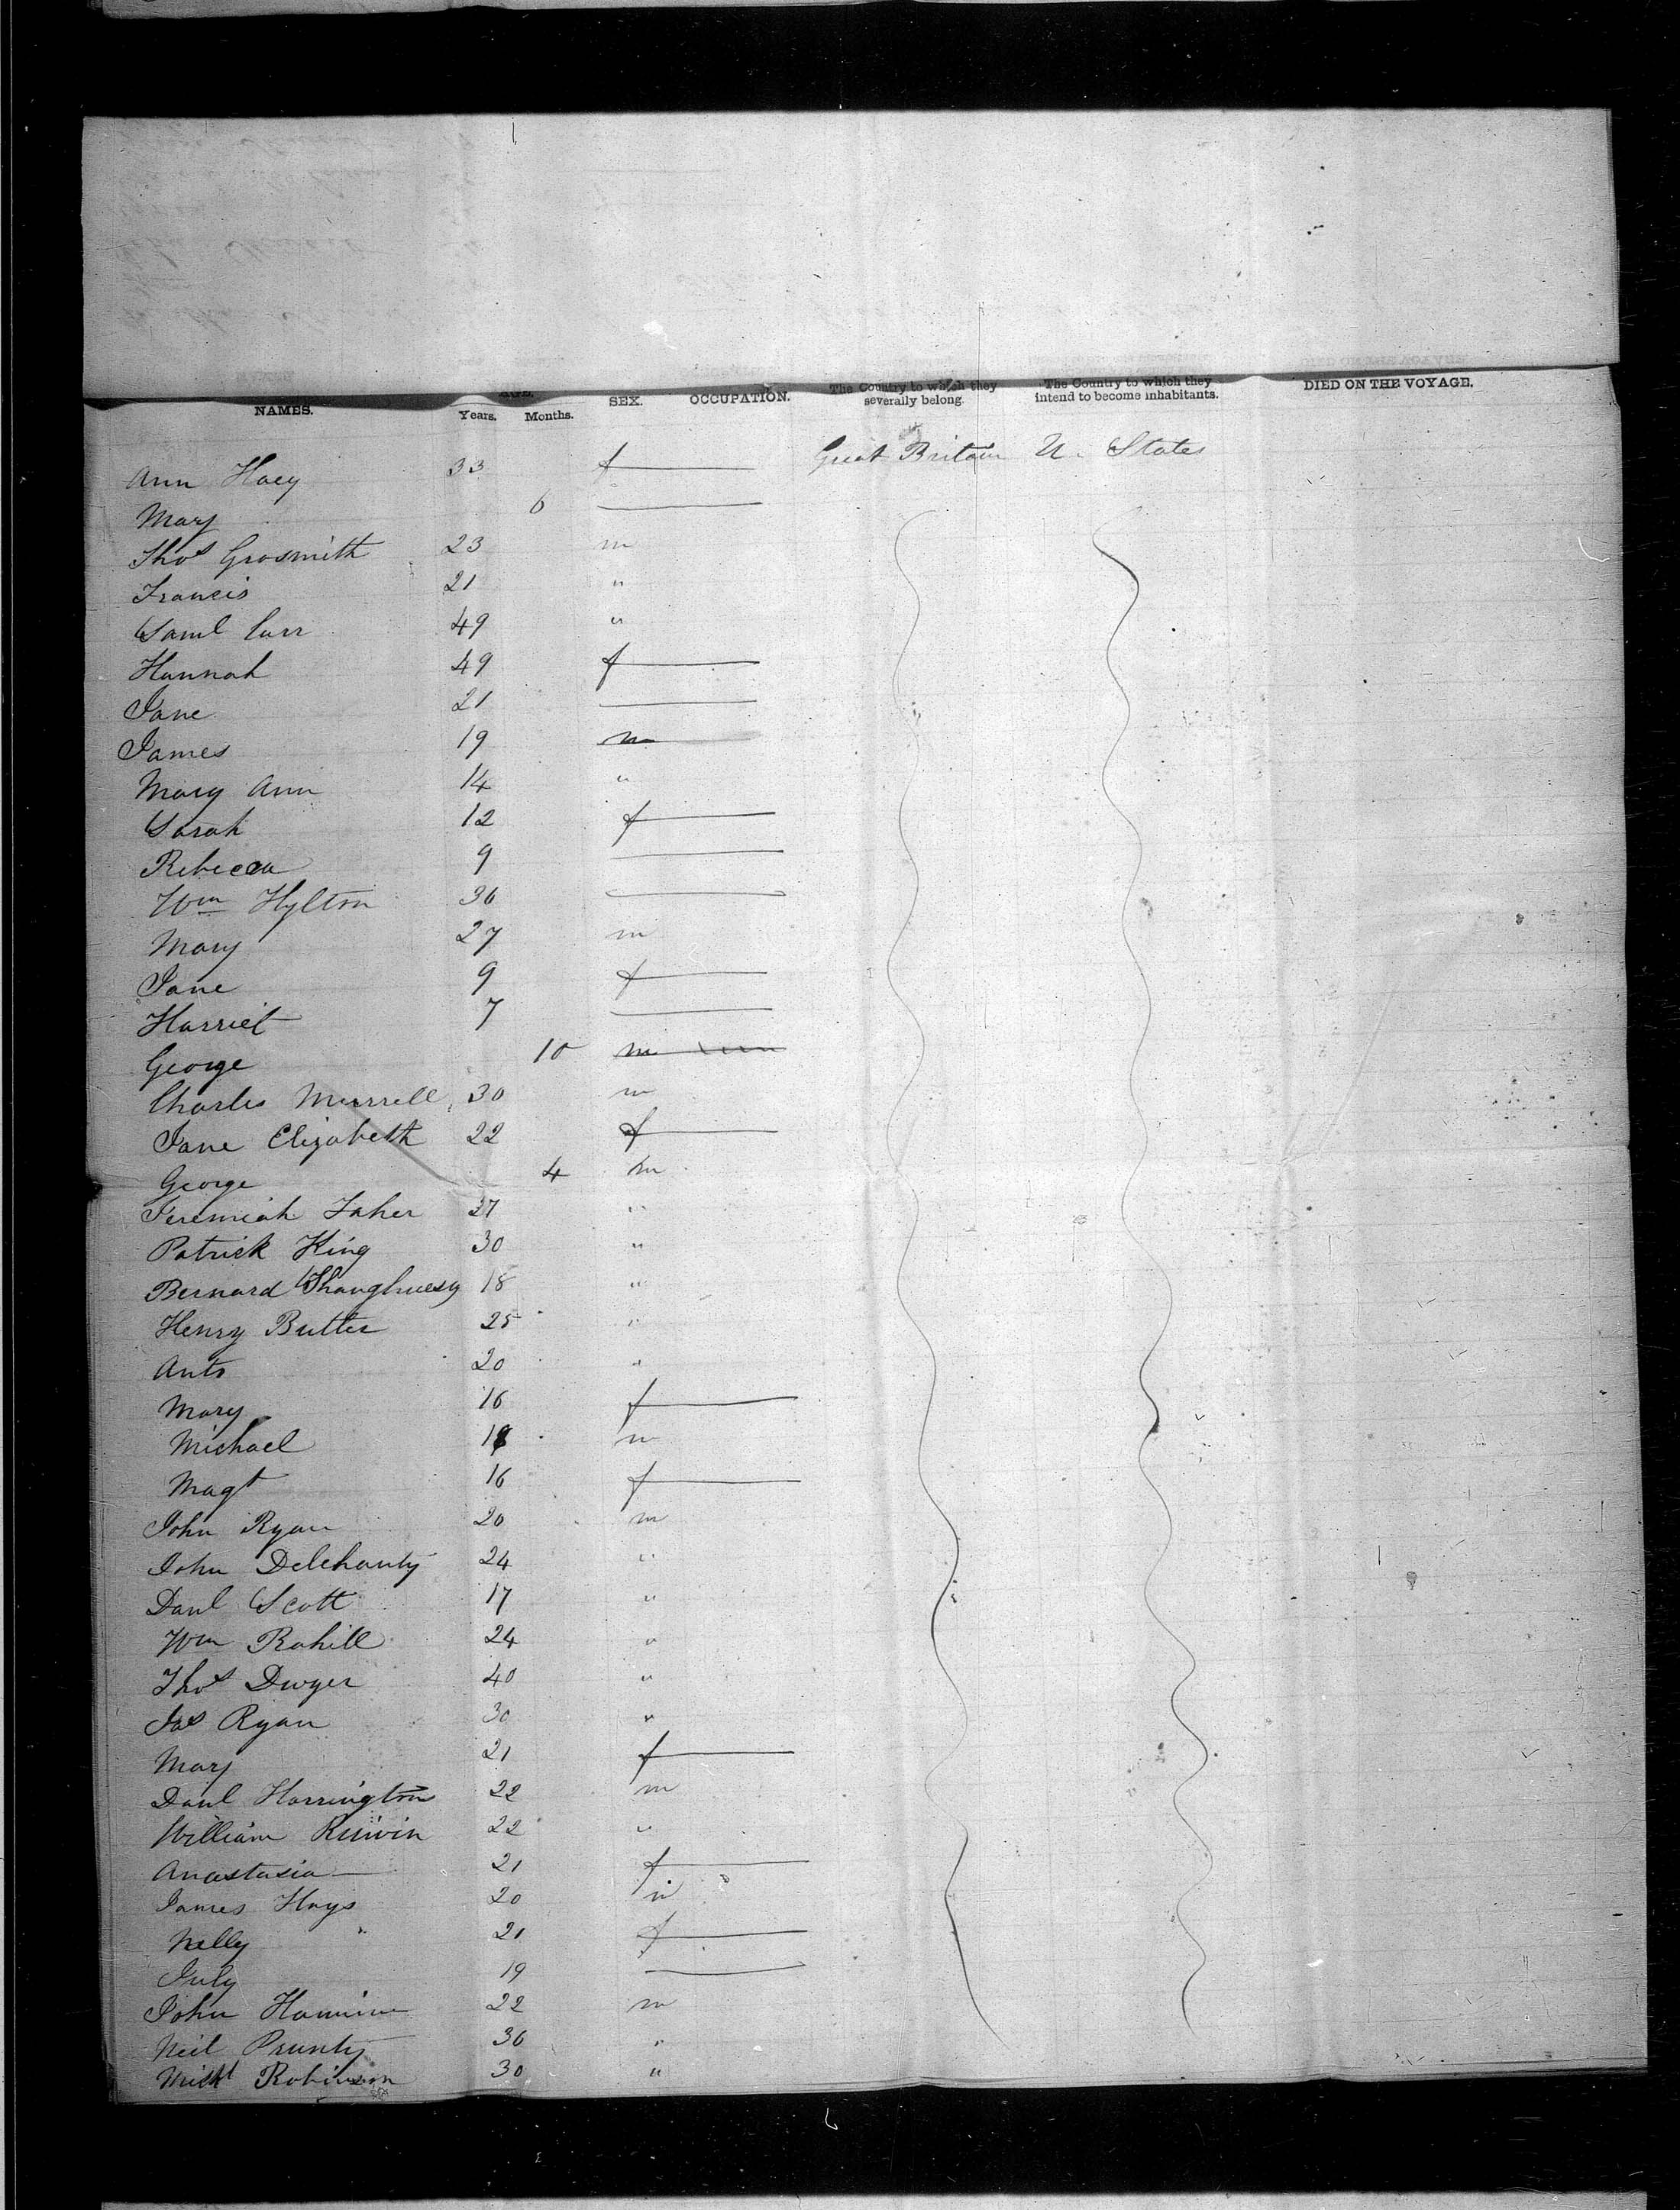 NAMES. AGE. Years. Months. SEX. OCCUPATION. The Country to which they severally belong. The Country to which they intend to become inhabitants. DIED ON THE VOYAGE.
Ann Hoey 33 f Great Britain U. States
Mary 6
Thos Grosmith 23 m
Francis 21 "
Saml Carr 49 "
Hannah 49 f
Jane 21
James 19 m
Mary Ann 14 "
Sarah 12 f
Rebecca 9
Wm Hylton 36
Mary 27 m
Jane 9 f
Harriet 7
George 10 m
Charles Murrell 30 m
Jane Elizabeth 22 f
George 4 m
Jeremiah Faher 27 "
Patrick King 30 "
Bernard 18 "
Henry Butter 25 "
Ants 20 "
Mary 16 f
Michael 18 m
Magt 16 f
John Ryan 20 m
John Delehanty 24 "
Danl Scott 17 "
Wm Rahill 24 "
Thos Dwyer 40 "
Jas Ryan 30 "
Mary 21 f
Danl Harrington 22 m
William 22 "
Anastasia 21 f
James Hays 20 m
Nelly 21 f
July 19
John 22 m
Neil Prunty 36 "
Michl Robinson 30 "